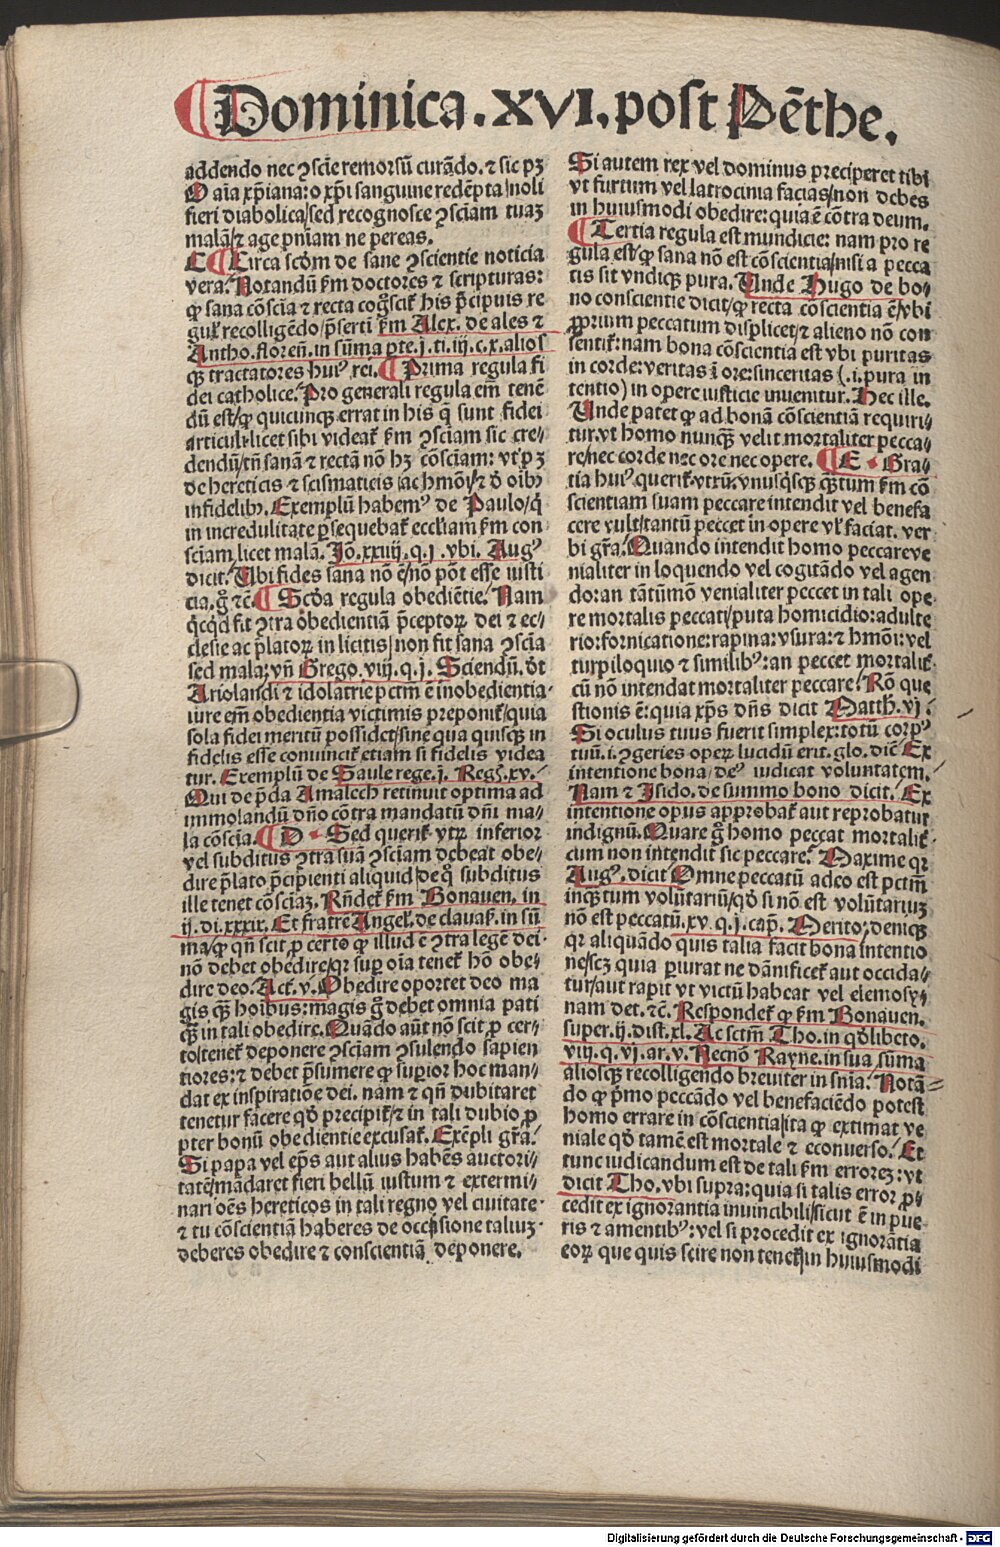 Dominica. XVI. post Pēthe.
addendo nec ꝯscīe remorsū curādo. ⁊ sic pꝫ
O aīa xp̄iana: o xp̄i sanguine redēpta/noli
fieri diabolica/sed recognosce ꝯsciam tuaꝫ
malā/⁊ age pn̄iam ne pereas.
C Circa scd̄m de sane ꝯscientie noticia
vera. Notandū ẜm doctores ⁊ scripturas:
ꝙ sana cōscīa ⁊ recta cogscit̄ his p̄cipuis re
gul̄ recolligēdo/p̄sertī ẜm Alex. de ales ⁊
Antho. florēn. in sūma pte. j. ti. iij. c. x. alios
qꝫ tractatores huiꝰ rei. Prima regula fi
dei catholice. Pro generali regula em̄ tenē
dū est/ꝙ quicunqꝫ errat in his q̄ sunt fidei
articuli licet sibi videat̄ ẜm ꝯsciam sic cre/
dendū/tn̄ sanā ⁊ rectā nō hꝫ cōsciam: vt pꝫ
de hereticis ⁊ scismaticis/ac hmōi/⁊ d̄ oībꝫ
infidelibꝫ. Exemplū habemꝰ de Paulo/q̇
in incredulitate ꝑsequebat̄ eccliam ẜm con
sciam licet malā. Jo. xxiiij. q. j. vbi. Augꝰ
dicit. Ubi fides sana nō ē/nō pōt esse iusti
cia. g̊ ⁊c̄. Scd̄a regula obediētie. Nam
q̇cqd fit ꝯtra obedientiā p̄ceptoꝝ dei ⁊ ec/
clesie ac p̄latoꝝ in licitis/non fit sana ꝯscīa
sed mala; vn̄ Grego. viij. q. j. Sciendū. ōt
Ariolandi ⁊ idolatrie pctm̄ ē inobedientia.
iure em̄ obedientia victimis preponit̄/quia
sola fidei meritū possidet/sine qua quisqꝫ in
fidelis esse conuincit̄ etiam si fidelis videa
tur. Exemplū de Saule rege. j. Reg. xv.
Qui de p̄da Amalech retinuit optima ad
immolandū dn̄o cōtra mandatū dn̄i ma/
la cōscīa. D Sed querit̄ vtꝝ inferior
vel subditus ꝯtra suā ꝯsciam debeat obe/
dire p̄lato p̄cipienti aliquid/de q̊ subditus
ille tenet cōsciaꝫ. Rn̄det̄ ẜm Bonauen. in
ij. di. xxxix. Et fratrē Angel̄. de clauas̄. in sū
ma/ꝙ qn̄ scit ꝓ certo ꝙ illud ē ꝯtra legē dei.
nō debet obedire/qꝛ suꝑ oīa tenet̄ hō obe/
dire deo. Act̄. v. Obedire oportet deo ma
gis qꝫ hoībus: magis g̊ debet omnia pati
qꝫ in tali obedire. Quādo aūt nō scit ꝓ cer/
to/tenet̄ deponere ꝯsciam ꝯsulendo sapien
tiores: ⁊ debet p̄sumere ꝙ suꝑior hoc man/
dat ex inspiratiōe dei. nam ⁊ qn̄ dubitaret
tenetur facere qd̄ precipit̄/⁊ in tali dubio ꝓ
pter bonū obedientie excusat̄. Exēpli gr̄a.
Si papa vel ep̄s aut alius habēs auctori/
tatē/mādaret fieri bellū iustum ⁊ extermi/
nari oēs hereticos in tali regno vel ciuitate.
⁊ tu cōscientiā haberes de occisione taliuꝫ.
deberes obedire ⁊ conscientiā deponere.
Si autem rex vel dominus preciperet tibi
vt furtum vel latrocinia facias/non debes
in huiusmodi obedire: quia ē cōtra deum.
Tertia regula est mundicie: nam pro re
gula est/ꝙ sana nō est cōscientia/nisi a pecca
tis sit vndiqꝫ pura. Unde Hugo de bo/
no conscientie dicit/ꝙ recta cōscientia ē/vbi
ꝓprium peccatum displicet/⁊ alieno nō con
sentit̄: nam bona cōscientia est vbi puritas
in corde: veritas ī ore: sinceritas (.i. pura in
tentio) in opere iusticie inuenitur. Hec ille.
Unde patet ꝙ ad bonā cōscientiā requiri/
tur. vt homo nunqꝫ velit mortaliter pecca/
re/nec corde nec ore nec opere. E Gra/
tia huiꝰ querit̄. vtrū: vnusq̇sqꝫ q̄ꝫtum ẜm cō
scientiam suam peccare intendit vel benefa
cere vult/tantū peccet in opere vl̄ faciat. ver
bi gr̄a. Quando intendit homo peccare ve
nialiter in loquendo vel cogitādo vel agen
do: an tātūmō venialiter peccet in tali ope/
re mortalis peccati/puta homicidio: adulte
rio: fornicatione: rapina: vsura: ⁊ hmōi: vel
turpiloquio ⁊ similibꝰ: an peccet mortalit̄.
cū nō intendat mortaliter peccare. Rō que
stionis ē: quia xp̄s dn̄s dicit Matth. vj.
Si oculus tuus fuerit simplex: totū corpꝰ
tuū. i. ꝯgeries operꝝ lucidū erit. glo. dicē Ex
intentione bona/deꝰ iudicat voluntatem.
Nam ⁊ Isido. de summo bono dicit. Ex
intentione opus approbat̄ aut reprobatur
indignū. Quare g̊ homo peccat mortalit̄.
cum non intendit sic peccare. Maxime qꝛ
Augꝰ. dicit Omne peccatū adeo est pctm̄
inqꝫtum volūtariū/qd̄ si nō est volūtariuꝫ
nō est peccatū. xv. q. j. cap. Merito; deniqꝫ
qꝛ aliquādo quis talia facit bona intentio
ne/scꝫ quia ꝑiurat ne dānificet̄ aut occida/
tur/aut rapit vt victū habeat vel elemosy/
nam det. ⁊c̄. Respondet̄ ꝙ ẜm Bonauen.
super. ij. dist. xl. Ac sctm̄ Tho. in qd̄libeto.
viij. q. vj. ar. v. Necnō Rayne. in sua sūma
aliosqꝫ recolligendo breuiter in sn̄ia. Notā/
do ꝙ p̄mo peccādo vel benefaciēdo potest
homo errare in cōscientia/ita ꝙ extimat ve
niale qd̄ tamē est mortale ⁊ econuerso. Et
tunc iudicandum est de tali ẜm erroreꝫ: vt
dicit Tho. vbi supra: quia si talis error ꝓ/
cedit ex ignorantia inuincibili/sicut ē in pue
ris ⁊ amentibꝰ: vel si procedit ex ignorātia
eoꝝ que quis scire non tenet̄/in huiusmodi
Digitalisierung gefördert durch die Deutsche Forschungsgemeinschaft - DFG